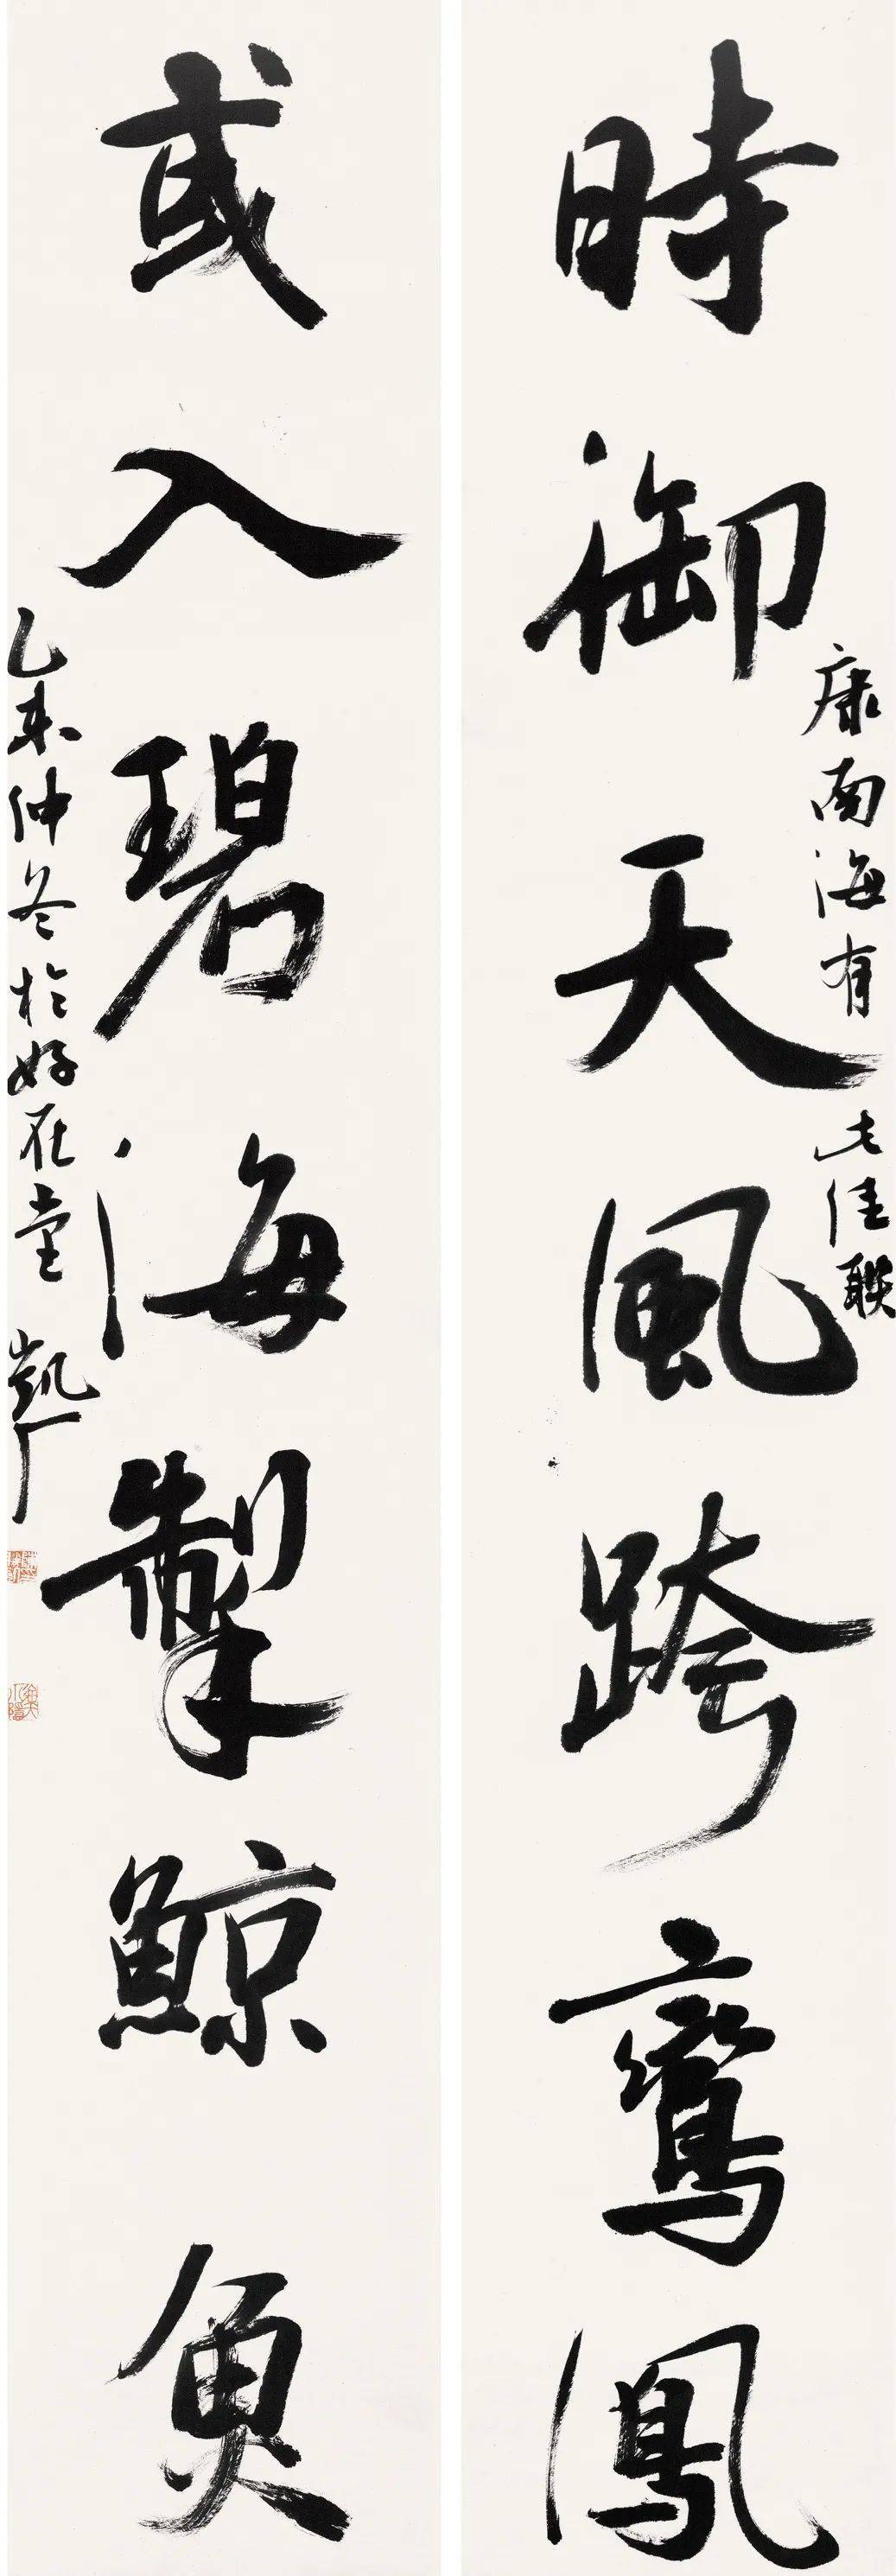 時御天風跨鸞鳳
康南海有此佳聯
或入碧海掣鯨魚
乙未仲冬於好在堂 凱厂